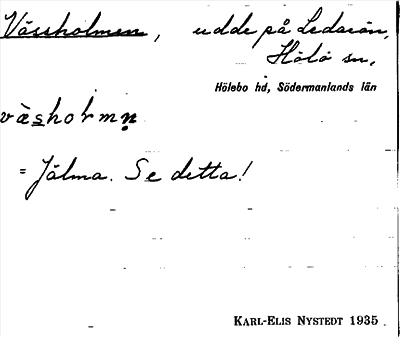 Vässholmen, udde på Ledarön,
Hölö sn,
Hölebo hd, Södermanlands län
väsholmn̥
= Jälma. Se detta!
KARL-ELIS NYSTEDT 1935.